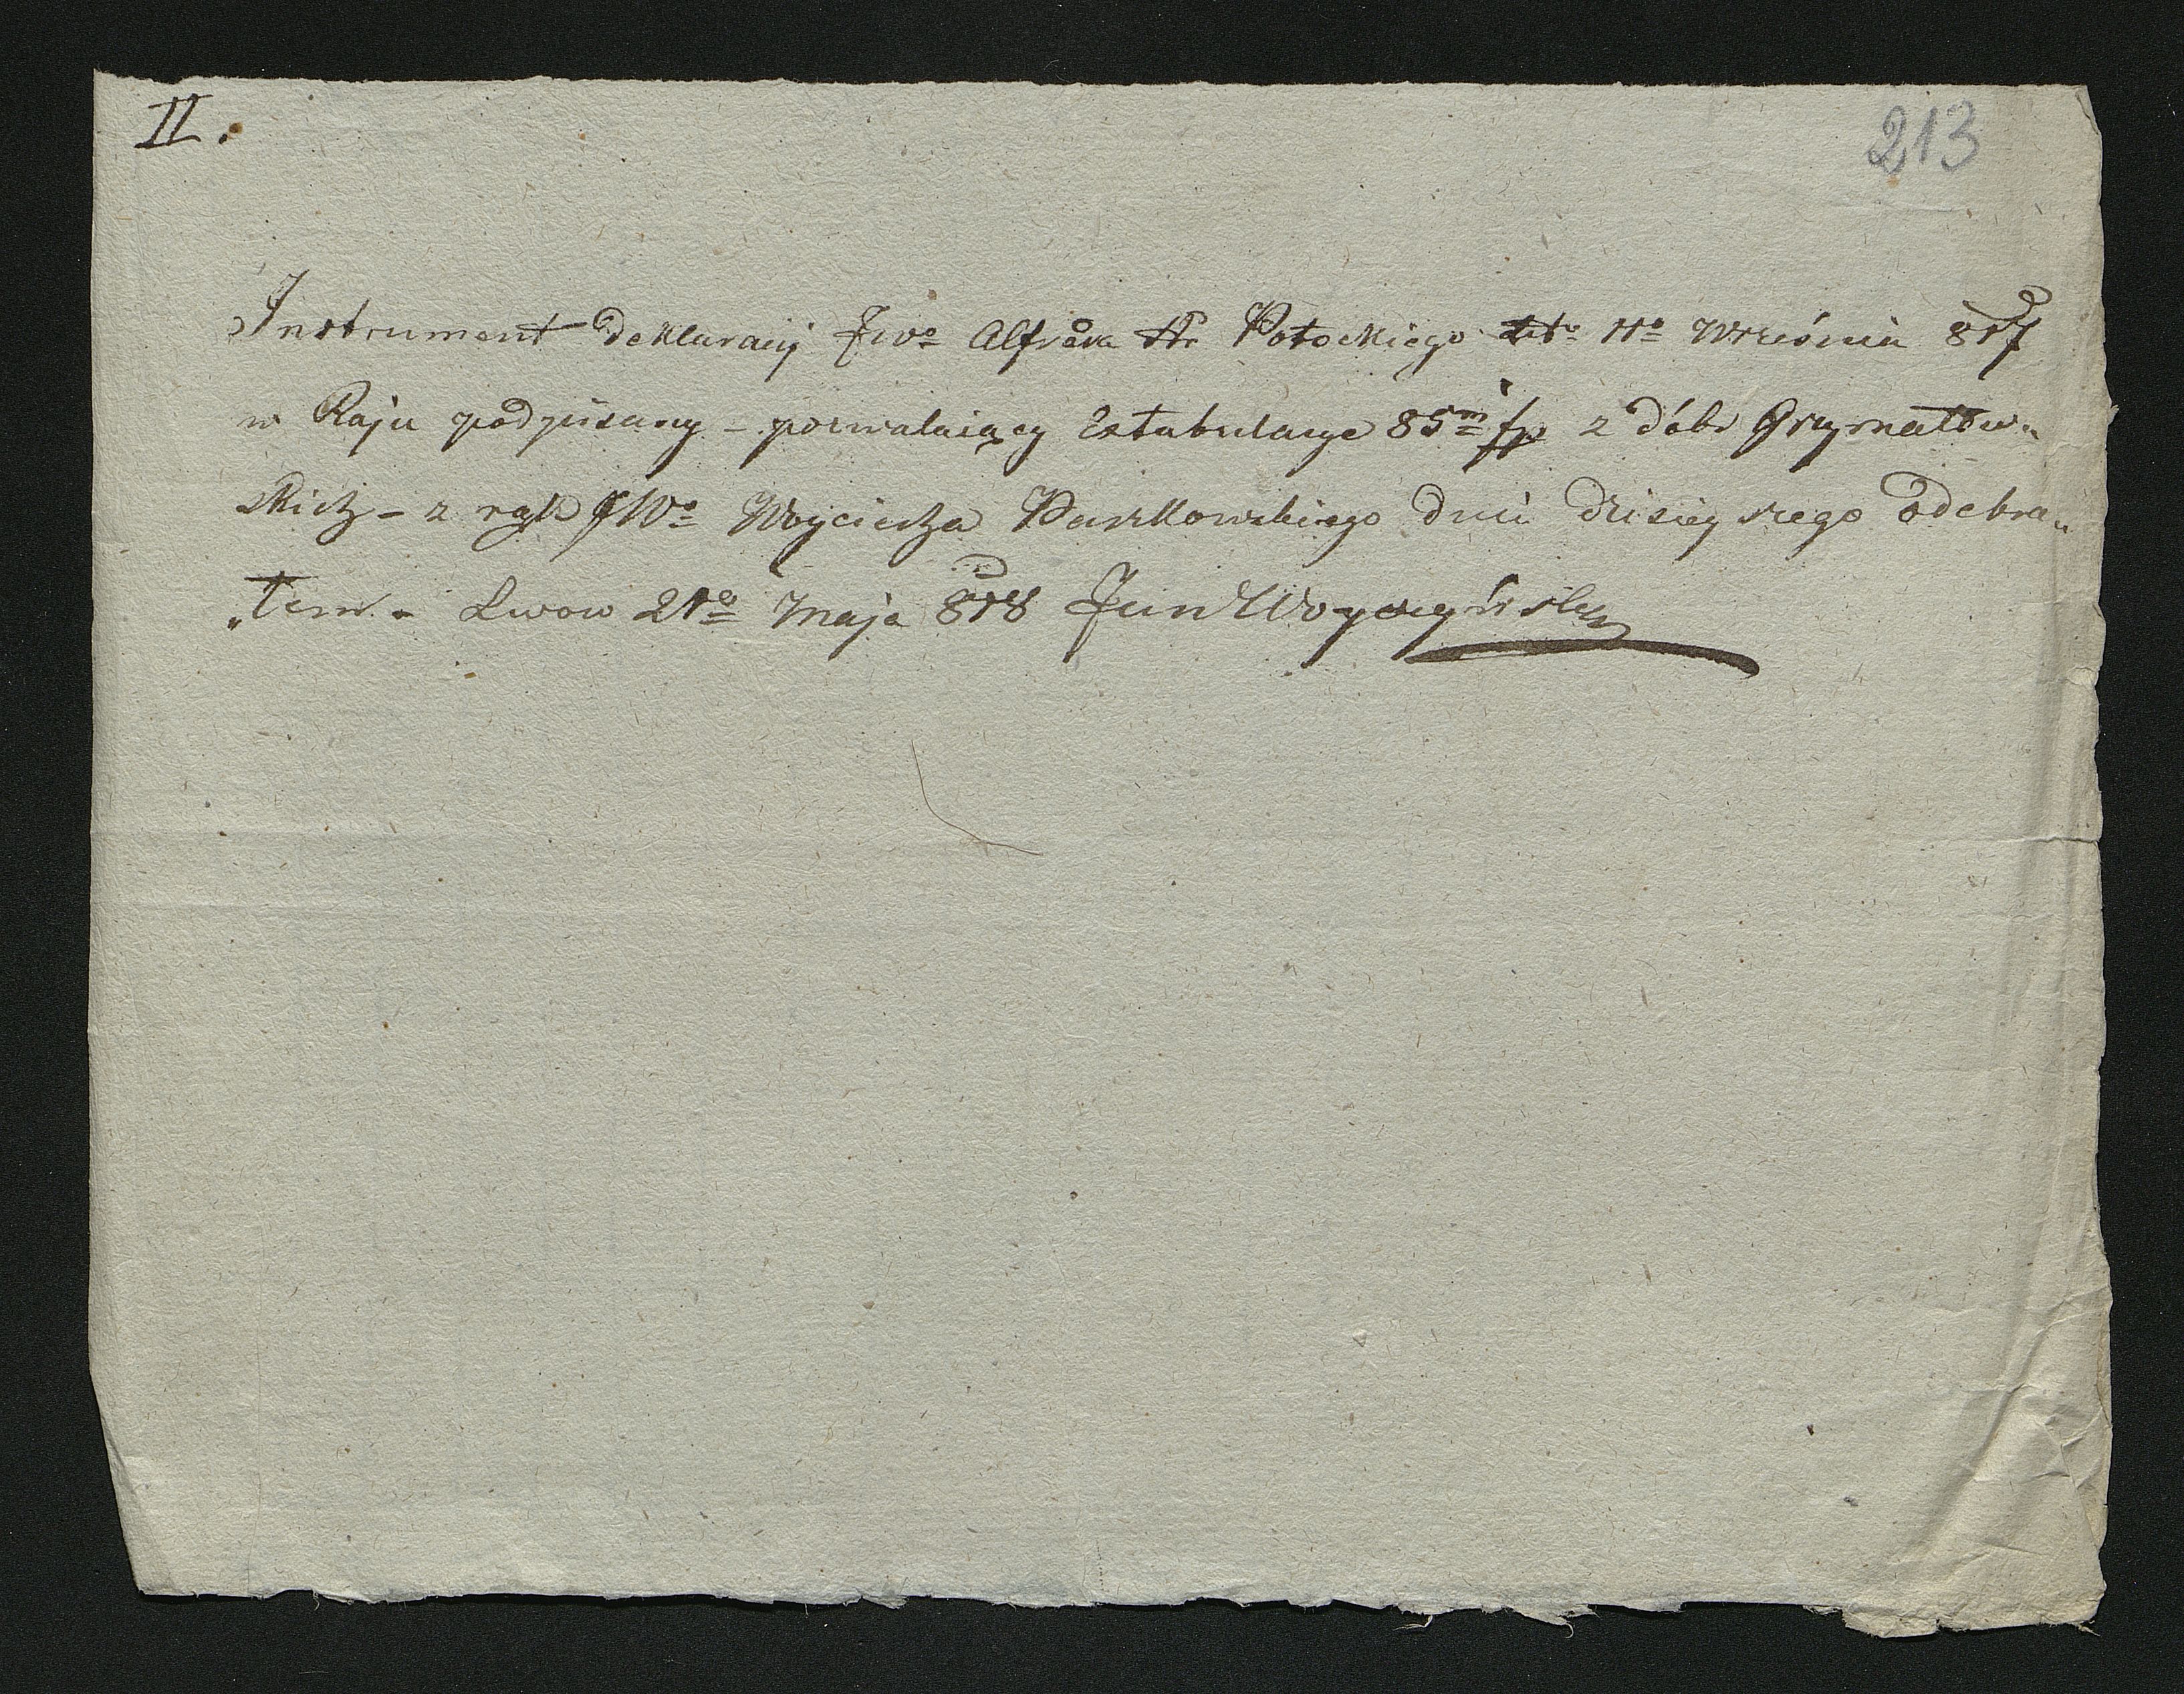 II.
213
Instrument Deklaracij JWo Alfreda Hr Potockiego 11o Wrzesnia 817
w Raju podpisany - pozwalaiący Extabulacye 85m fp z dóbr Grzymałow„
skich - z rąk JWo Woyciecha Paszkowskiego dnia dzisieyszego odebra„
„łem - Lwow 21o Maja 818 Jan Woyczyński